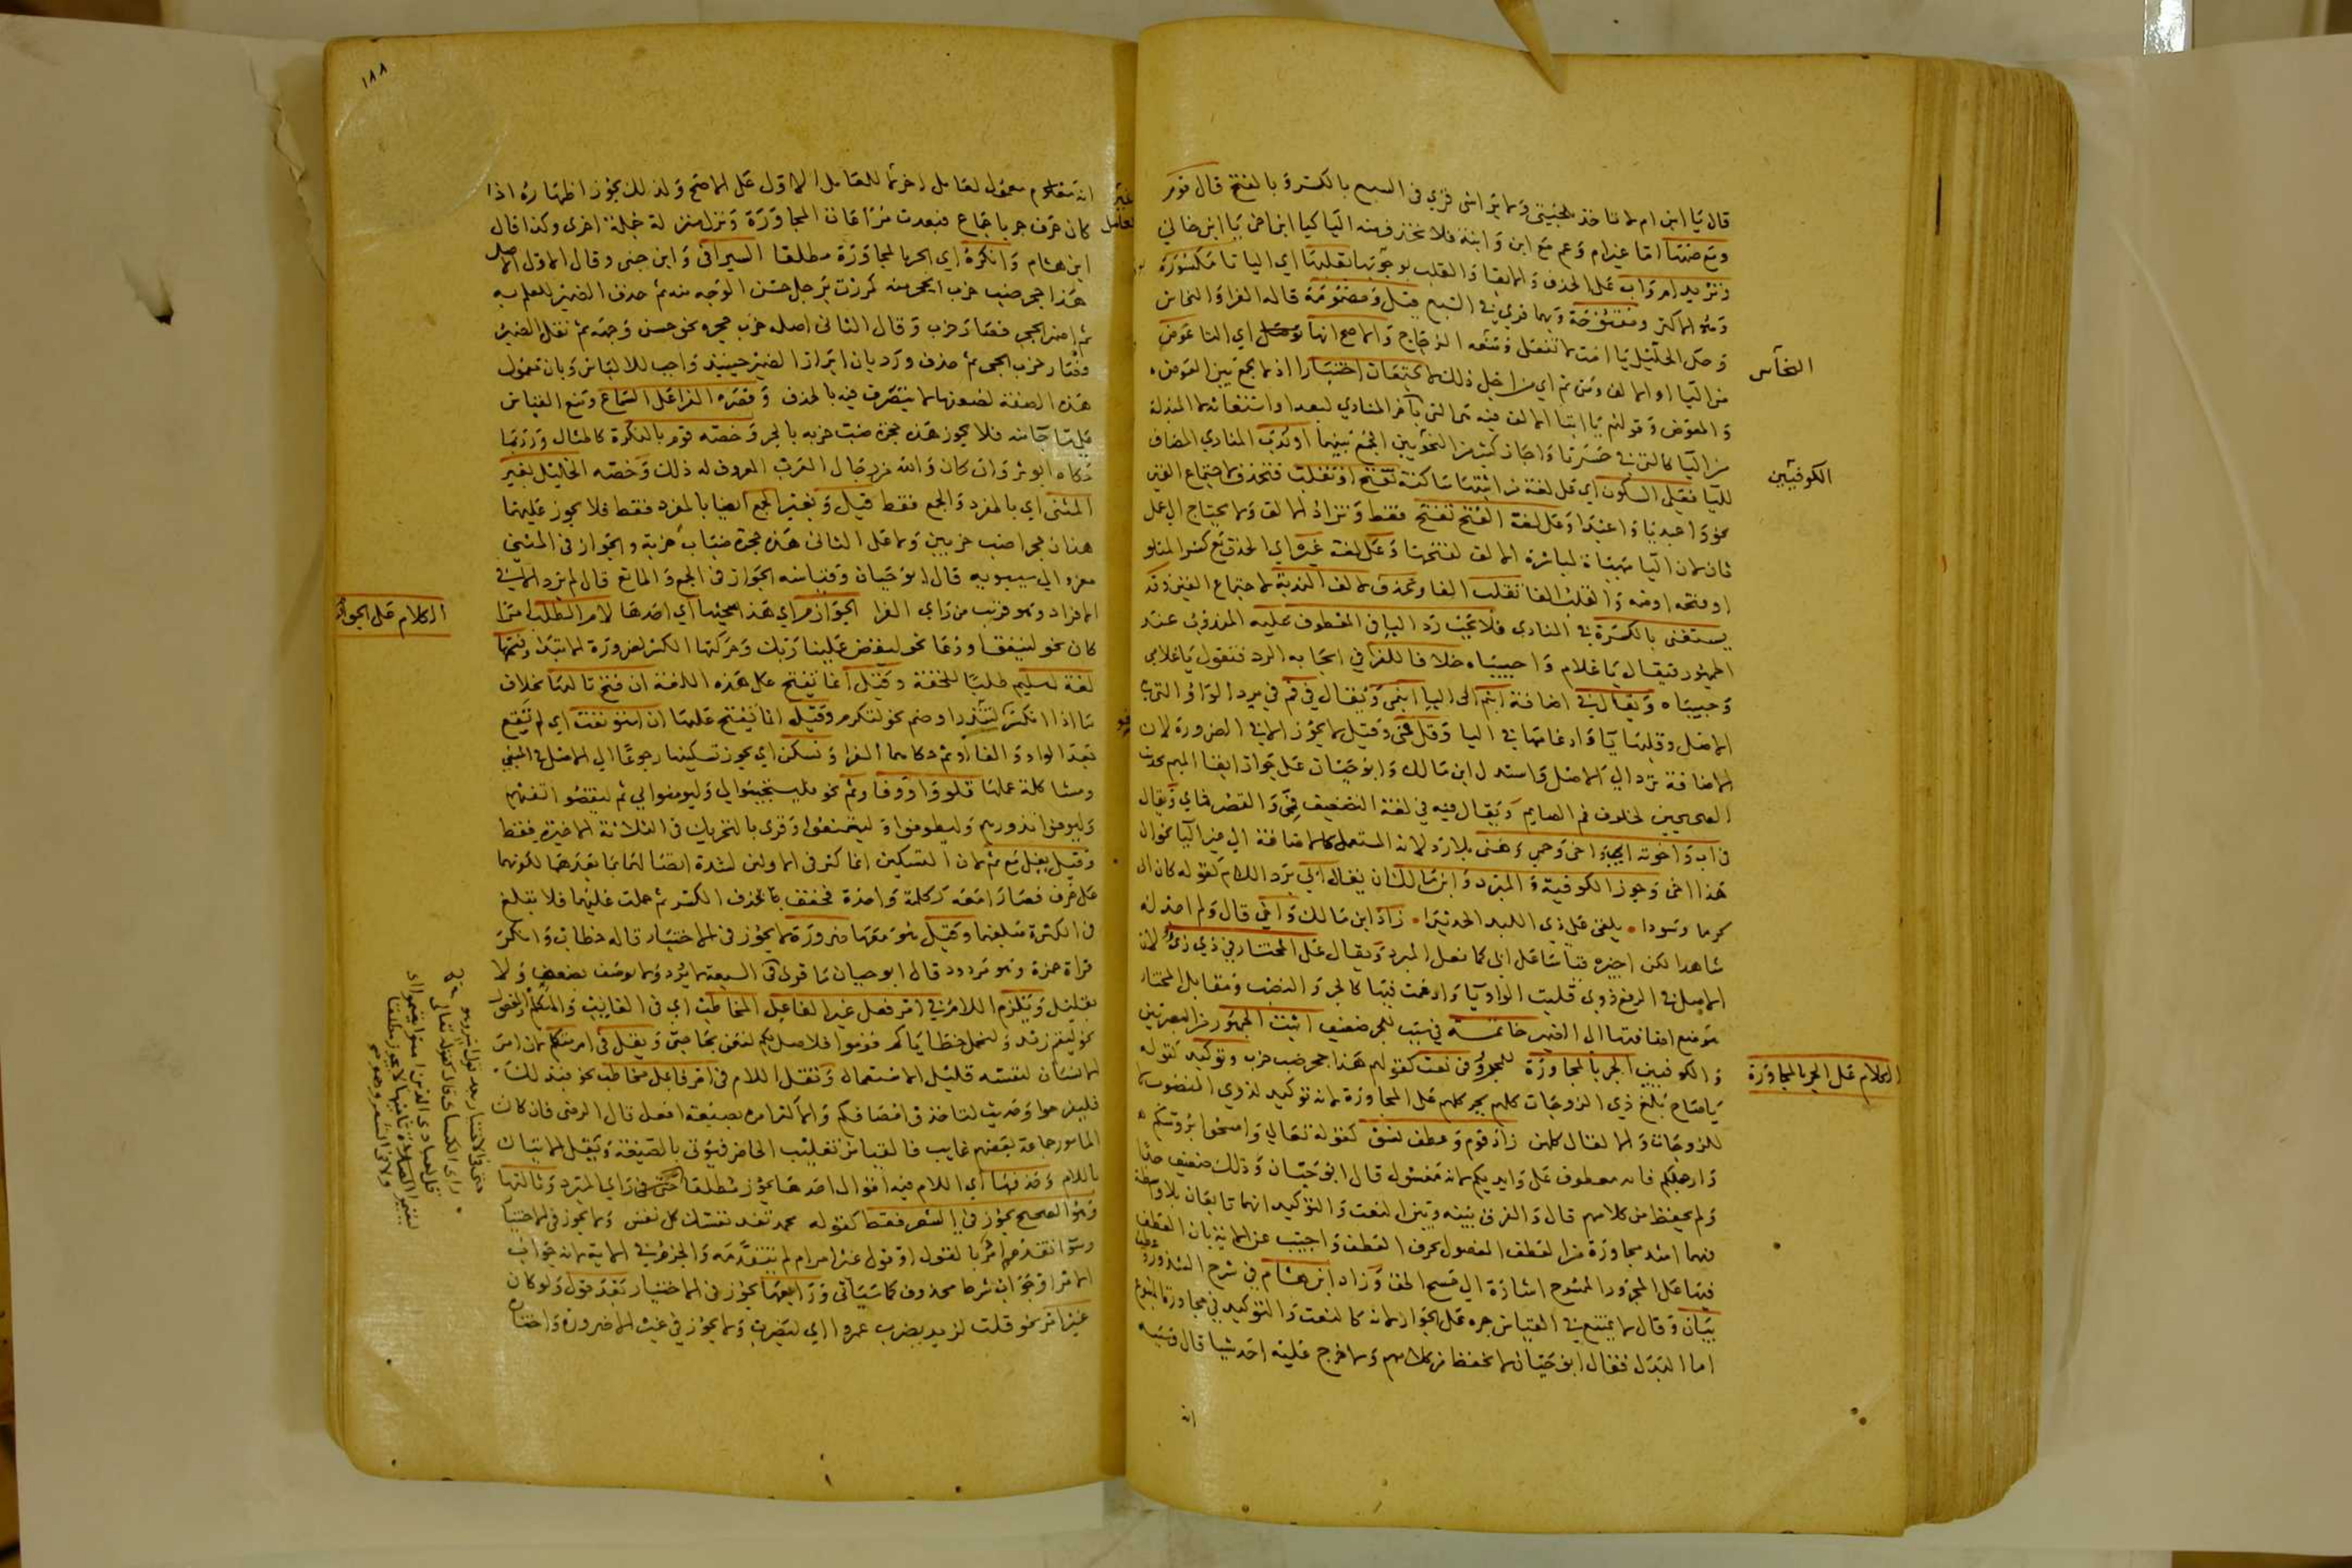 قال يا ابن ام لا تاخذ بلحيتي ولا براسي قري في السبع بالكسر وبالفتح قال قوم
وبع ضمها اما غير ام وعم مع ابن وابنة فلا تحذف منه اليا كيا ابن اخي يا ابن خالي
وتزيد ام واب على الحذف والابقا والقلب بوجوبها نقلبها اي اليا تا مكسورة
وهو الاكثر ومفتوحة وبهما قري في السبع قيل ومضمومة قاله الفرا والنحاس
وحكى الخليل يا امت لا تفعلي ومنعه الزجاج والاصح انها اي التا عوض
من اليا او الالف ومن ثم اي من اجل ذلك لا يجتمعان اختيارا اذ لا يجمع بين العوض
والمعوض وقولهم يا ابتا الالف فيه هي التي بآخر المنادي لبعد او استغاثة لا المبدلة
من اليا كالتي في حسرتا واجاز كثير من النحويين الجمع بينهما او ندب المنادي المضاف
لليا فعلى السكون اي على لغة من اثبتها ساكنة تفتح او تقلب فتحذف لاجتماع الفين
نحو واعبديا واعبدا وعلى لغة الفتح تفتح فقط وتزاد الالف ولا يحتاج الى عمل
ثان لان اليا مهياة لمباشرة الالف لفتحها وعلى لغة غيره اي الحذف مع كسر المتلو
او فتحه او ضمه والقلب الفا تقلب الفا وتحذف لالف الندبة لاجتماع الفين وقد
يستغنى بالكسرة في المنادي فلا يجب رد اليا في المعطوف عليه المندوب عند
الجمهور فيقال يا غلام واحبيباه خلافا للفرا في ايجابه الرد فتقول يا غلامي
وحبيباه ويقال في اضافة ابنم الى اليا ابنمي ويقال في فم في برد الواو التي هي
الاصل وقلبها يآ وادغامها في اليا وقل فمي وقيل لا يجوز الا في الضرورة لان
الاضافة ترد الى الاصل واستدل ابن مالك وابو حيان على جواز ابقا الميم بحديث
الصحيحين لخلوف فم الصايم ويقال فيه في لغة التضعيف فمي والقصر فماي ويقال
في اب واخوته ابي واخي وحمي وهني بلا رد لانه المستعمل كالاضافة الى غير اليا نحو ان
هذا اخي وجوز الكوفية والمبرد وابن مالك ان يقال ابي برد اللام كقوله كان ابي
كرما وسودا يلقي على ذي اللبد الحديدا زاد ابن مالك واخي قال ولم اجد له
شاهدا لكن اجيزه قياسا على ابي كما فعل المبرد ويقال على المختار في ذي ذي لان
الاصل في الرفع ذوي قلبت الواو يا وادغمت فيها كالجر والنصب ومقابل المختار
موضع اضافتها الى الضمير خاتمة في سبب للجر ضعيف اثبت الجمهور من البصريين
والكوفيين الجر بالمجاورة للمجرور في نعت كقولهم هذا جحر ضب خرب وتوكيد كقوله
يا صاح بلغ ذي الزوجات كلهم بجر كلهم على المجاورة لانه توكيد لذوي المنصوب لا
للزوجات والا لقال كلهن زاد قوم وعطف نسق كقوله تعالى وامسحوا برؤسكم
وارجلكم فانه معطوف على وايديكم لانه مغسول قال ابو حيان وذلك ضعيف جدا
ولم يحفظ من كلامهم قال والفرق بينه وبين النعت والتوكيد انهما تابعان بلا واسطة
فهما اشد مجاورة من العطف المفصول بحرف العطف واجيب عن الاية بان العطف
فيها على المجرور الممسوح اشارة الى مسح الخف وزاد ابن هشام في شرح الشذور عطف
بيان وقال لا يمتنع في القياس جره على الجوار لانه كالنعت والتوكيد في مجاورة المتبوع
اما البدل فقال ابو حيان لا يحفظ من كلامهم ولا خرج عليه احد شيا قال وسببه
انه
النحاس
الكوفيين
الكلام على الجر بالمجاورة
١٨٨
انه معمول لعامل اخر لا للعامل الاول على الاصح ولذلك يجوز اظهاره اذا
كان حرف جر باجماع فبعدت مراعاة المجاورة ونزل منزلة جملة اخرى وكذا قال
ابن هشام وانكره اي الجر بالمجاورة مطلقا السيرافي وابن جني وقال الاول الاصل
هذا جحر ضب خرب الجحر منه كمررت برجل حسن الوجه منه ثم حذف الضمير للعلم به
ثم اضمر الجحر فصار خرب وقال الثاني اصله خرب جحره نحو حسن وجهه ثم نقل الضمير
فصار خرب الجحر ثم حذف ورد بان ابراز الضمير حينيذ واجب للالباس وبان معمول
هذه الصفة لضعفها لا يتصرف فيه بالحذف وقصره الفرا على السماع ومنع القياس
على ما جا منه فلا يجوز هذه جحرة ضب خربة بالجر وخصه قوم بالنكرة كالمثال ورد بما
حكاه ابو ثروان كان والله من رجال العرب المعروف له ذلك وخصه الخليل بغير
المثنى اي بالمفرد والجمع فقط قيل وبغير الجمع ايضا بالمفرد فقط فلا يجوز عليهما
هذان جحرا ضب خربين ولا على الثاني هذه جحرة ضباب خربة والجواز في المثنى
معزو الى سيبويه قال ابو حيان وقياسه الجواز في الجمع والمانع قال لم يرد الا في
الافراد وهو قريب من راي الفرا الجوازم اي هذا مبحثها اي احدها لام الطلب امرا
كان نحو لينفق او دعا نحو ليقض علينا ربك وحركتها الكسر لضرورة الابتدا وفتحها
لغة لسليم طلبا للخفة وقيل انما تفتح على هذه اللغة ان فتح تاليها بخلاف
ما اذا انكسر لتئذر او ضم نحو لتكرم وقيل انما يفتح عليها ان استونفت اي لم تقع
بعد الواو والفا او ثم حكاهما الفرا وتسكن اي يجوز تسكينها رجوعا الى الاصل في المبني
ومشاكلة عملها تلو واو وفا وثم نحو فليستجيبوا لي وليومنوا بي ثم ليقضوا تفثهم
وليوفوا نذورهم وليطوفوا وليتمتعوا وقري بالتحريك في الثلاثة الاخيرة فقط
وقيل يقل مع ثم لان التسكين انما كثر في الاولين لشدة اتصالهما بما بعدهما لكونهما
على حرف فصارا معه ككلمة واحدة فخفف بحذف الكسر ثم حملت عليهما فلا تبلغ
في الكثرة مبلغهما وقيل هو معها ضرورة لا يجوز في الاختيار قاله خطاب وانكر
قراة حمزة وهو مردود قال ابو حيان ما قري في السبعة لا يرد ولا يوصف بضعف ولا
بقليل ويلزم اللام في امر فعل غير الفاعل المخاطب اي في الغايب والمتكلم والمفعول
نحو ليقم زيد ولنحمل خطاياكم قوموا فلاصل لكم لتعن بحاجتي ويقل في امر متكلم لان امر
الانسان لنفسه قليل الاستعمال وتقل اللام في امر فاعل مخاطب نحو فبذلك
فليفرحوا وحديث لتاخذوا مصافكم والاكثر امره بصيغة افعل قال الرضي فان كان
المامور جماعة بعضهم غايب فالقياس تغليب الحاضر فيؤتى بالصيغة ويقل الاتيان
باللام وحذفها اي اللام فيه اقوال احدها يجوز مطلقا حتى في راي المبرد وثالثها
وهو الصحيح يجوز في الشعر فقط كقوله محمد تفد نفسك كل نفس ولا يجوز في الاختيار
وسوا تقدم امر بالقول او قول غير امر ام لم يتقدمه والجزم في الاية لانه جواب
الامر او جواب شرط محذوف كما سياتي ورابعها يجوز في الاختيار بعد قول ولو كان
غير امر نحو قلت لزيد يضرب عمروا اي ليضرب ولا يجوز في غيره الا ضرورة واختاره
الكلام على الجوازم